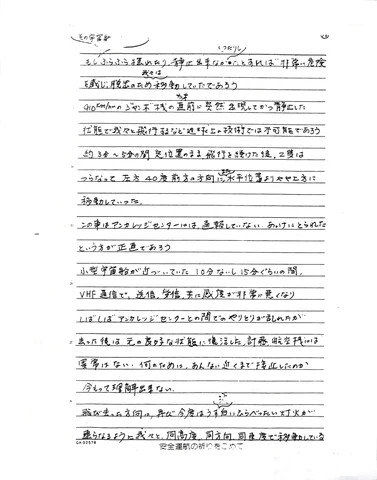 その宇宙船
いったりし
もし、ふらふら揺れたり、静止出来なかったとすれば 非常に危険
我々は
を感じ、脱出のため移動していたであろう
910km/hrの ジャンボ機の直前に 突然 出現して かつ静止した
状態で我々と飛行するなど 地球上の技術では不可能であろう
約3分〜5分の間 定位置のまま 飛行を続けた後、2隻は
つらなって 左方 40度前方の方向に 水平位置より やや上方に
移動していった。
この事はアンカレッジセンターには、通報していない。あっけにとられた
という方が正直であろう
小型宇宙船が近づいていた 10分ないし15分ぐらいの間、
VHF通信で、送信、受信、共に感度が非常に悪くなり
しばしばアンカレッジセンターとの間でのやりとりが乱れたが
去った後は 元の良好な状態に復活した。計器 航空機には
異常はない。何のために、あんなに近くまで接近したのか
今もって理解出来ない。
飛び去った方向に、再び 今度はうす白いひらべったい灯火が
我々と、同高度、同方向、同速度で移動している
安全運航の祈りをこめて